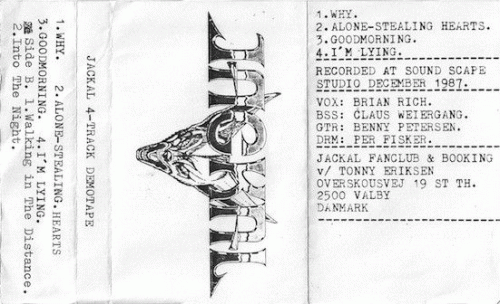 1.WHY. 2.ALONE-STEALING.HEARTS
3.GOODMORNING. 4.I'M LYING.
Side B. 1.Walking in The Distance.
2.Into The Night.
JACKAL 4-TRACK DEMOTAPE
JACKAL
1.WHY.
2.ALONE-STEALING HEARTS.
3.GOODMORNING.
4.I'M LYING.
RECORDED AT SOUND SCAPE
STUDIO DECEMBER 1987.
VOX: BRIAN RICH.
BSS: CLAUS WEIERGANG.
GTR: BENNY PETERSEN.
DRM: PER FISKER.
JACKAL FANCLUB & BOOKING
v/ TONNY ERIKSEN
OVERSKOUSVEJ 19 ST TH.
2500 VALBY
DANMARK